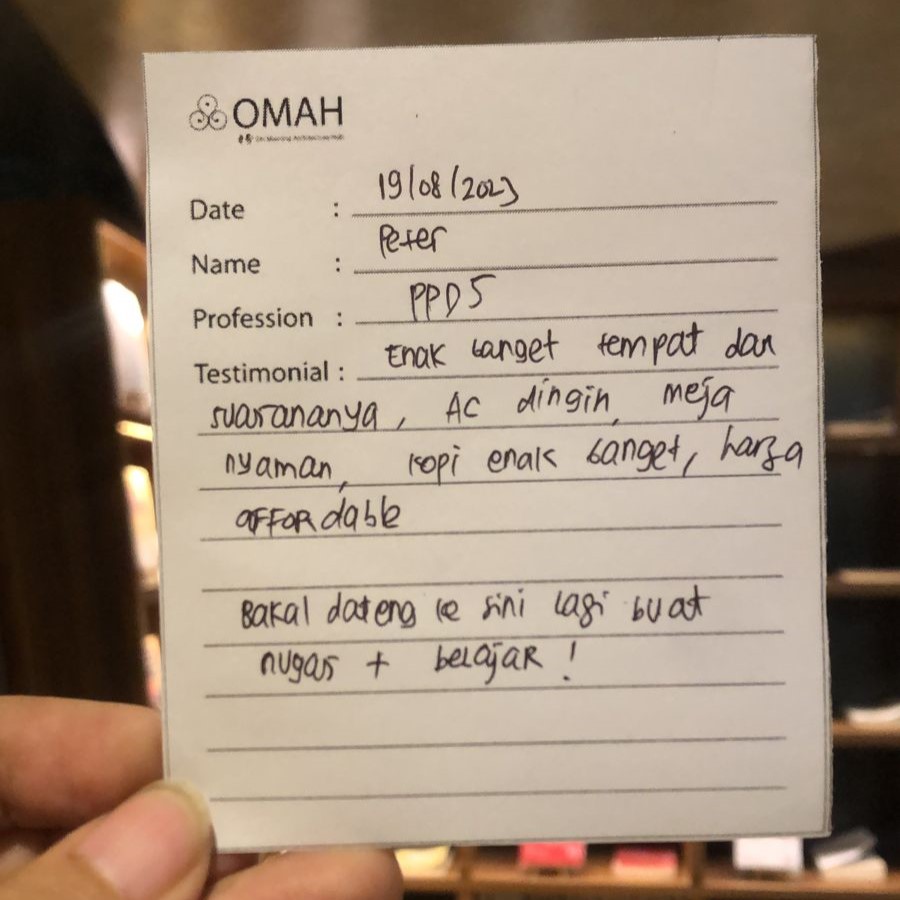 OMAH
Date : 19/08/2023
Name : Peter
Profession : PPDS
Testimonial : Enak banget tempat dan
suasananya, AC dingin, meja
nyaman, kopi enak banget, harga
affordable
Bakal dateng ke sini lagi buat
nugas + belajar !